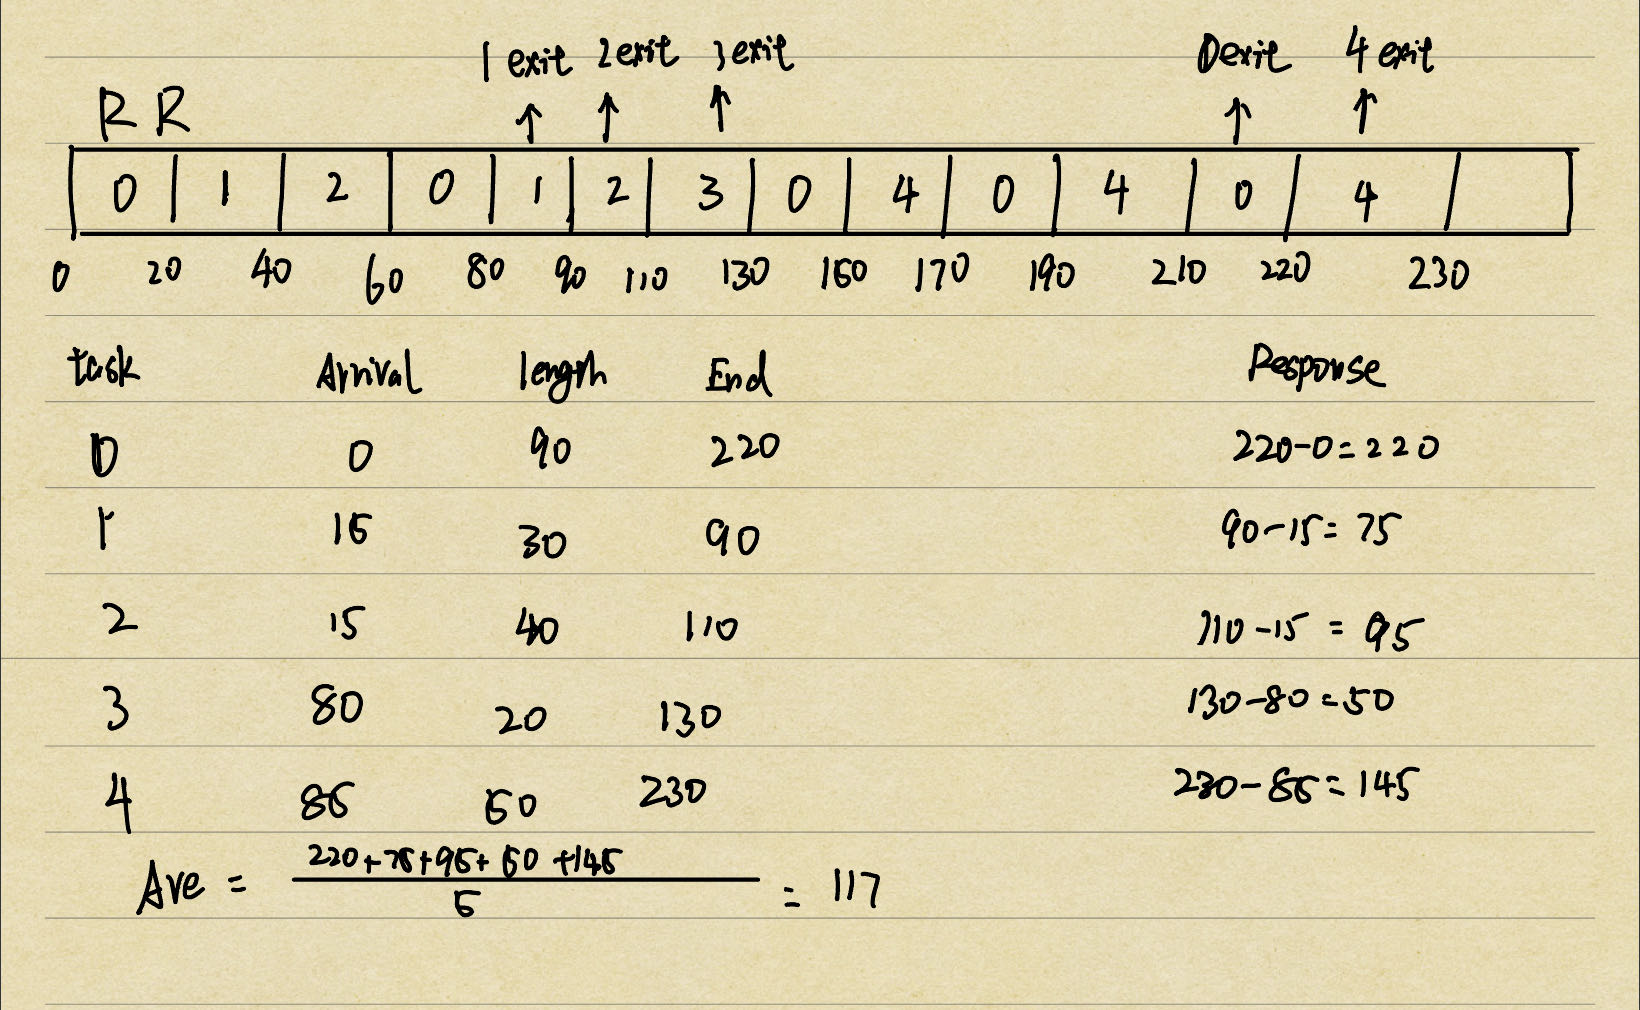 1 exit 2 exit 3 exit 0 exit 4 exit
RR
0 1 2 0 1 2 3 0 4 0 4 0 4
0 20 40 60 80 90 110 130 150 170 190 210 220 230
task Arrival length End Response
0 0 90 220 220-0=220
1 15 30 90 90-15=75
2 15 40 110 110-15=95
3 80 20 130 130-80=50
4 85 50 230 230-85=145
220+75+95+50+145
Ave = = 117
5